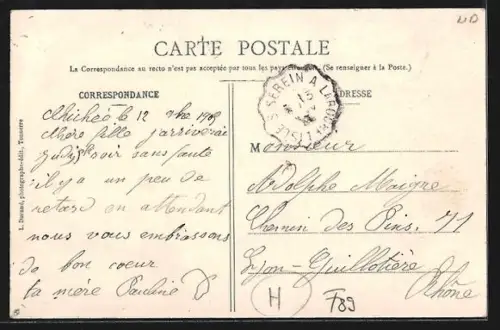 UD
CARTE POSTALE
La Correspondance au recto n'est pas acceptée par tous les pays (Se renseigner à la Poste.)
CORRESPONDANCE
ADRESSE
L'ISLE S SEREIN A LAROCHE
15
le 12 1909
Chère fille j'arriverai
jeudi soir sans faute
il y a un peu de
retard en attendant
nous vous embrassons
de bon coeur
ta mère Pauline D
Monsieur
Adolphe Maigre
Chemin des Pins. 71
Lyon-Guillotière
Rhône
H
F89
photographe-édit., Tonnerre